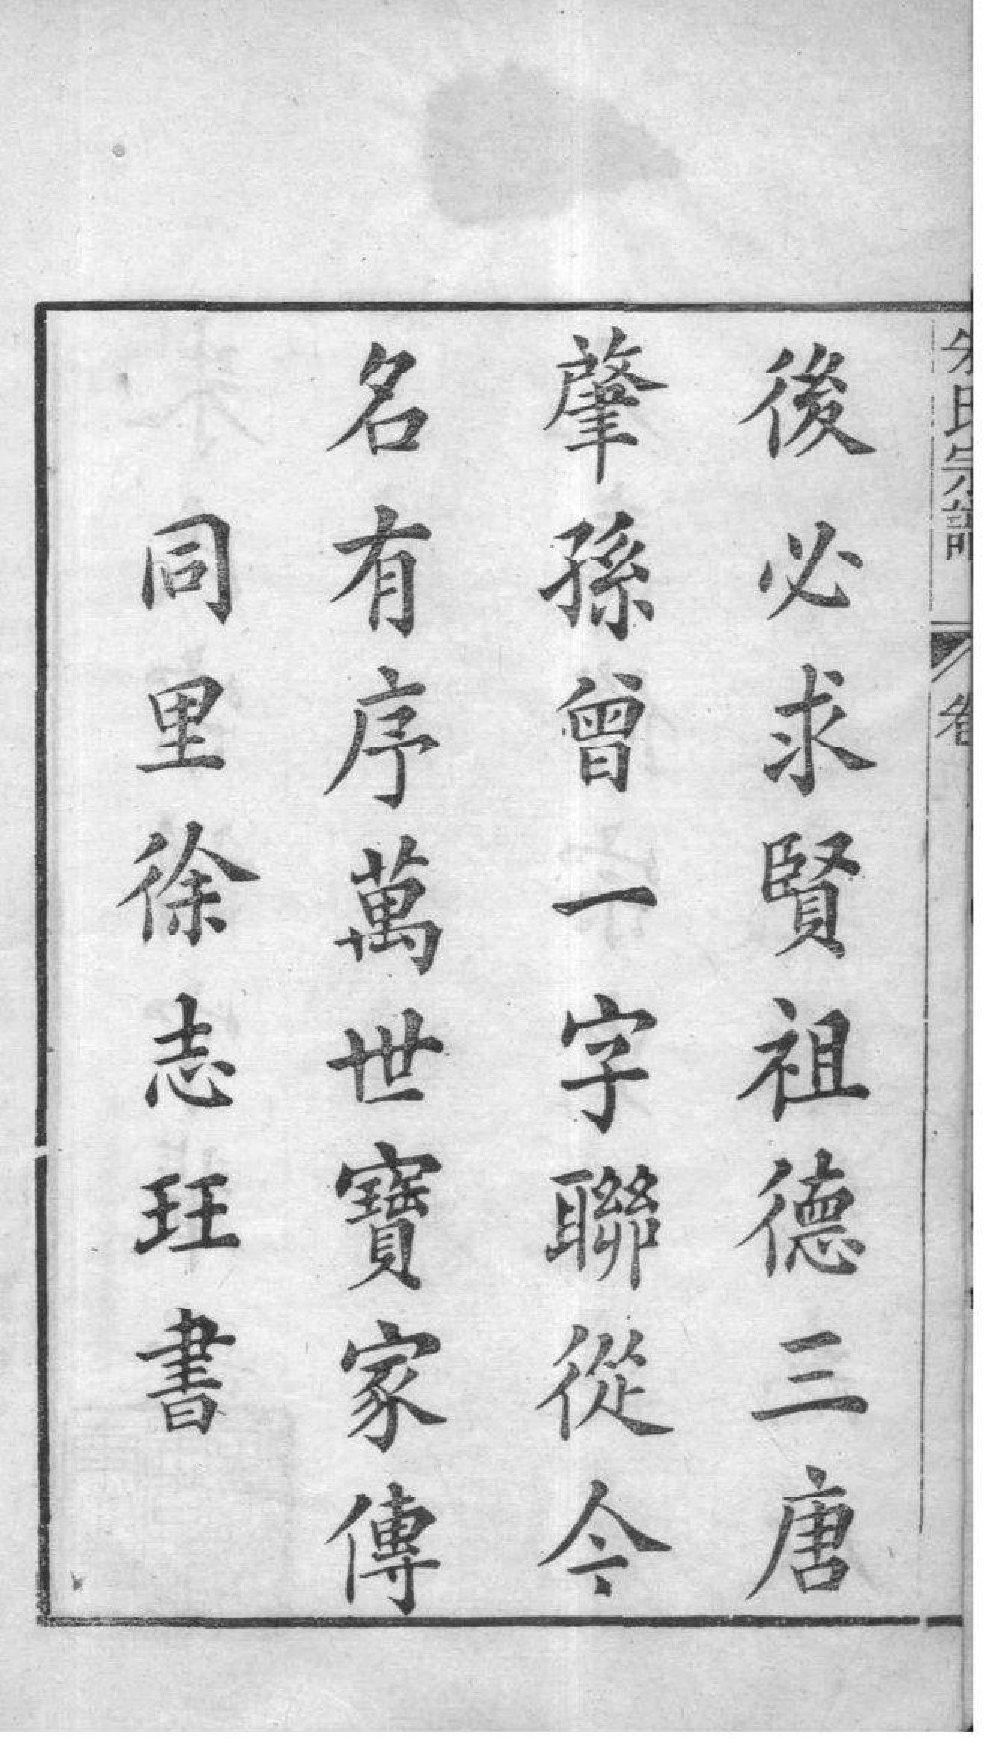 氏宗譜
卷
後必求賢祖德三唐
肇孫曾一字聯從今
名有序萬世寶家傳
同里徐志玨書